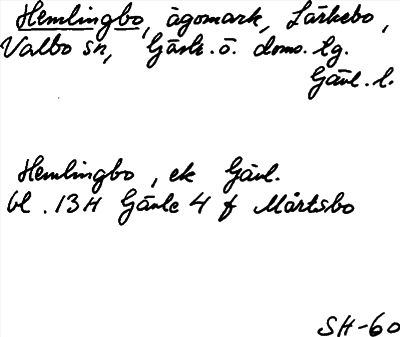 Hemlingbo, ägomark, Lärkebo,
Valbo sn, Gästr. ö. doms. tg.
Gävl. l.
Hemlingbo, ek Gävl.
bl. 13H Gävle 4 f Mårtsbo
SH-60